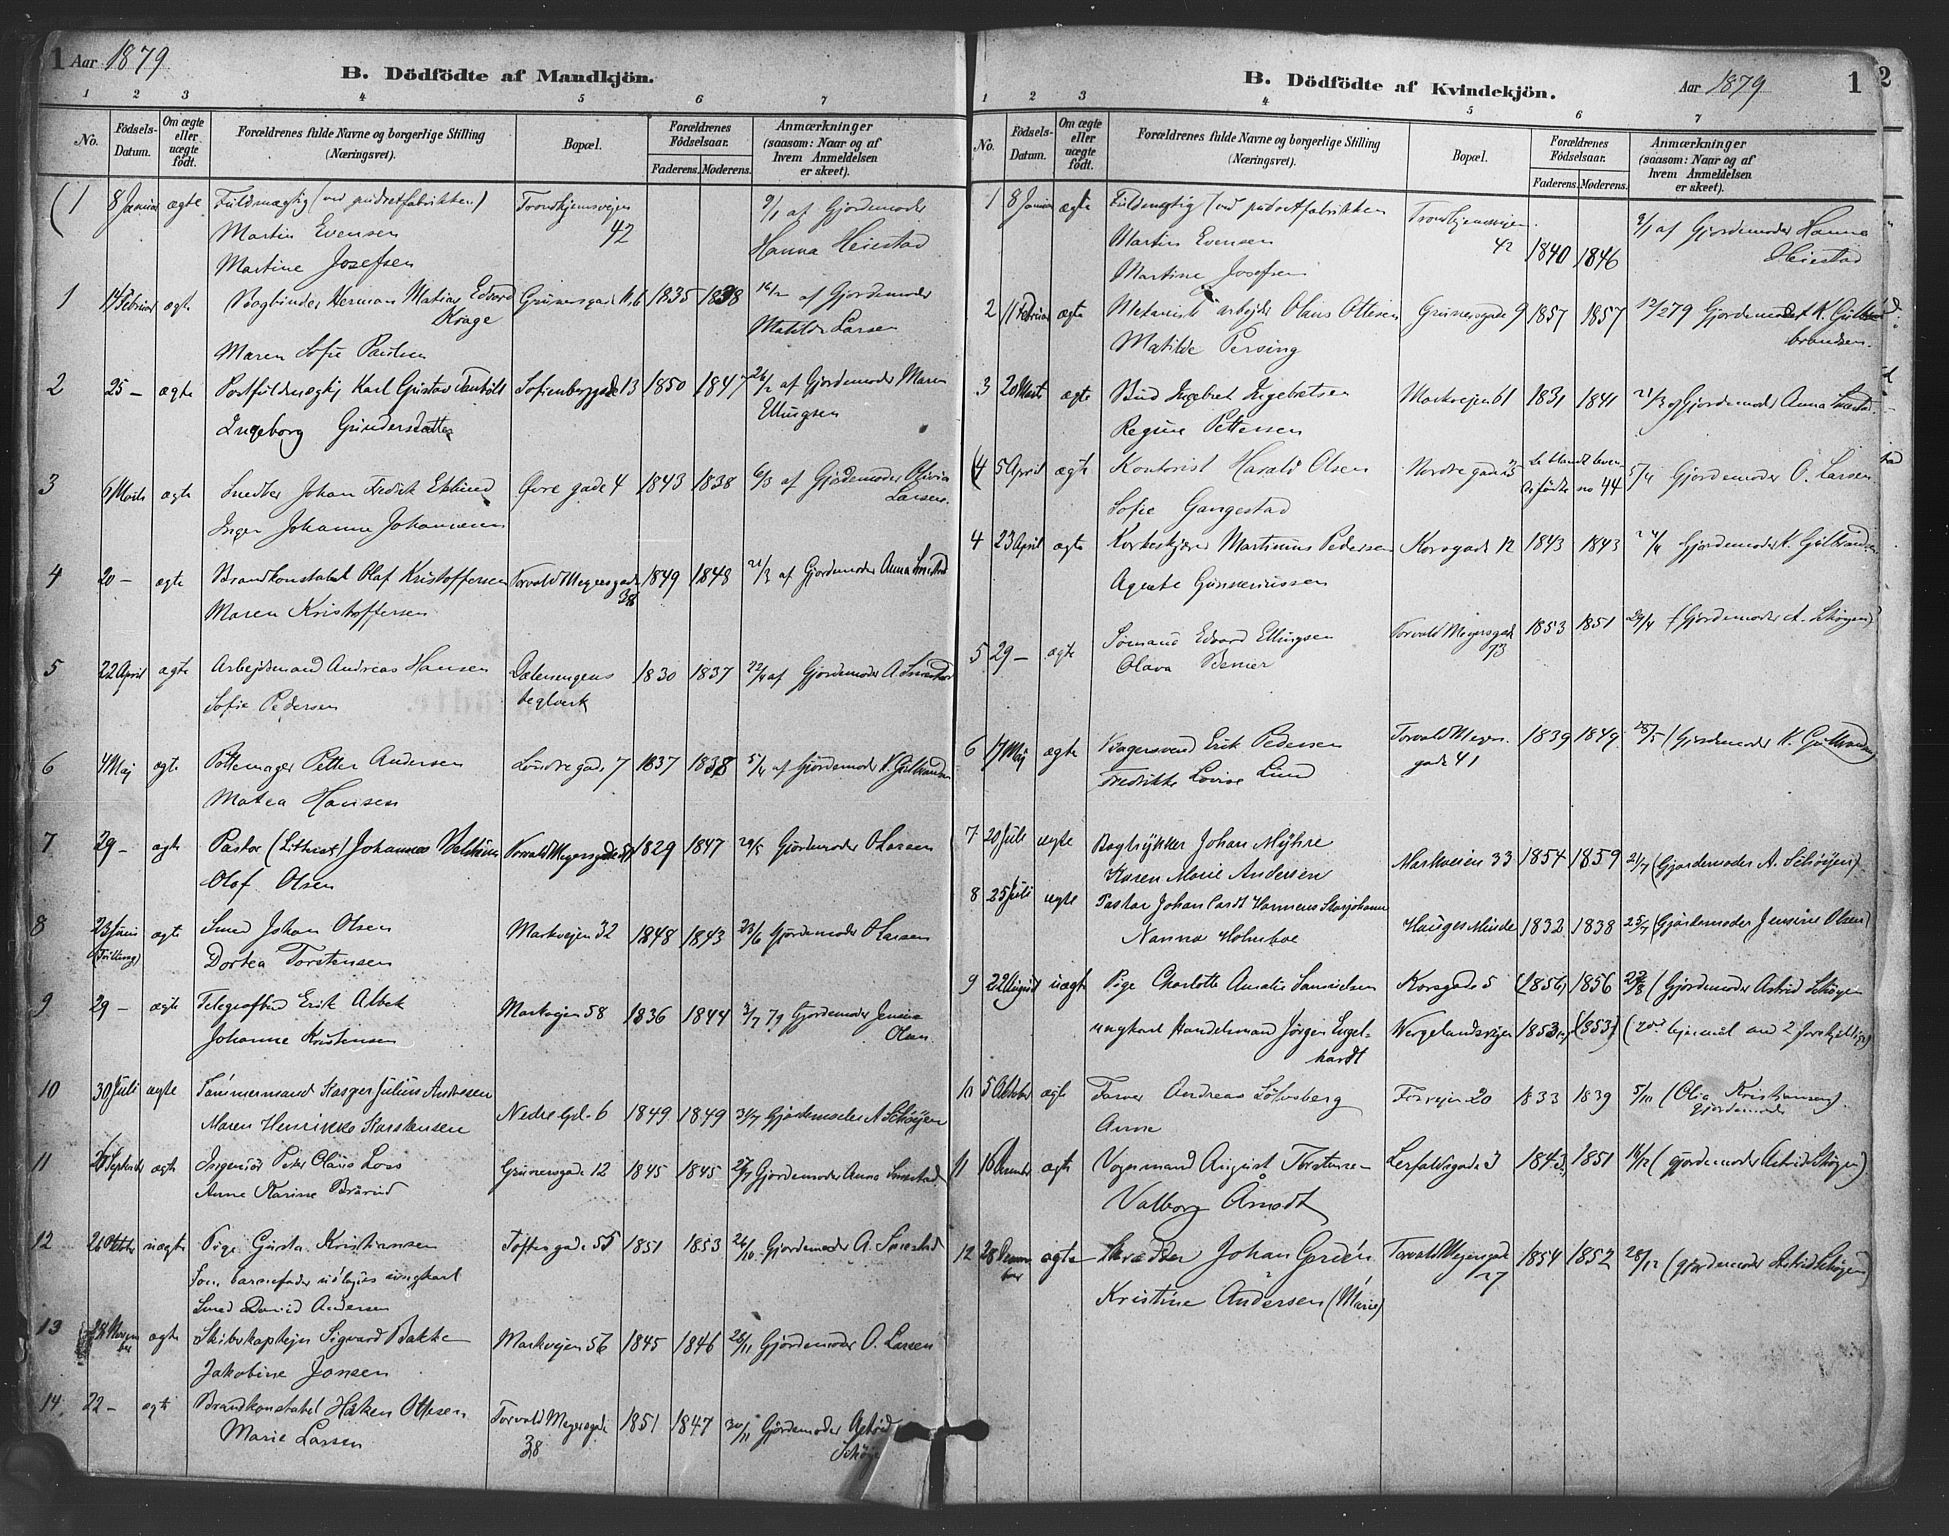 1 Aar 1879
B. Dödfödte af Mandkjön.
1 2 3 4 5 6 7
No. Födsels-Datum. Om ægte eller uægte födt. Forældrenes fulde Navne og borgerlige Stilling (Næringsvei). Bopæl. Forældrenes Födselsaar. Faderens. Moderens. Anmærkninger (saasom: Naar og af hvem Anmeldelsen er skeet).
(1 8 Januar ægte Fuldmægtig (ved pudretfabrikken) Trondhjemsvejen 42 9/1 af Gjordemoder
Martin Evensen Hanna Heiestad
Martine Josefsen
1 14 Februar ægte Bogbinder Herman Matias Edvard Krage Grünersgade 6 1835 1838 af Gjordemoder
Maren Sofie Paulsen Matilde Larsen
2 25 - ægte Postfuldmægtig Karl Gustav Sofienberggade 13 1850 1847 26/2 af Gjordemoder Maren
Ingeborg Gundersdatter Ellingsen
3 6 Marts ægte Snedker Johan Fredrik Eklund Øvre gade 4 1843 1838 6/3 af Gjordemoder Olivia
Inger Johanne Johannesen Larsen.
4 20 - ægte Brandkonstabel Olaf Kristoffersen Torvald Meyersgade 38 1849 1848 21/3 af Gjordemoder Anna Smestad
Maren Kristoffersen
5 22 April ægte Arbejdsmand Andreas Hansen Dælenengens 1830 1837 22/4 af Gjordemoder A Smestad
Sofie Pedersen teglverk
6 4 Maj ægte Pottemager Petter Andersen gade 7 1837 1838 af Gjordemoder K. Gulbrandsen
Matea Hansen
7 29 - ægte Pastor (Luthersk) Johannes Torvald Meyersgade 1829 1847 29/5 Gjordemoder O Larsen
Olof. Olsen
8 23 Juni ægte Smed Johan Olsen Markvejen 32 1848 1843 23/6 Gjordemoder O Larsen
(Tvilling) Dortea Torstensen
9 29 - ægte Telegrafbud Erik Albek Markvejen 58 1836 1844 3/7 79 Gjordemoder Jensine
Johanne Kristensen Olsen
10 30 Juli ægte Tømmermand Kasper Julius Andresen
Maren Henrikke Karstensen Nedre 6 1849 1849 31/7 Gjordemoder A Schøyen
11 September ægte Ingeniør Peter Claus Grünersgade 12 1845 1845 27/9 Gjordemoder Anna Smestad.
Anne Karine
12 26 Oktober uægte Pige Gusta Kristiansen Toftesgade 55 1851 1853 26/10 Gjordemoder A. Smestad
Som barnefader udlagdes ungkarl
Smed David Andersen
13 November ægte Skibskaptejn Sigvard Bakke Markvejen 56 1845 1846 28/11 Gjordemoder O. Larsen
Jakobine Jonsen
14 22 - ægte Brandkonstabel Haken Ottesen Torvald Meyersgade 1851 1847 30/11 Gjordemoder Astrid
Marie Larsen 38 Schøyen
B. Dödfödte af Kvindekjön.
Aar 1879 1 2
1 2 3 4 5 6 7
No. Födsels-Datum. Om ægte eller uægte födt. Forældrenes fulde Navne og borgerlige Stilling (Næringsvei). Bopæl. Forældrenes Födselsaar. Faderens. Moderens. Anmærkninger (saasom: Naar og af hvem Anmeldelsen er skeet).
1 8 Januar ægte Fuldmægtig (ved pudretfabrikken Trondhjemsvejen 42 1840 1846 9/1 af Gjordemoder Hanna
Martin Evensen Heiestad
Martine Josefsen
2 11 Februar ægte Mekanisk arbejder Olaus Ottesen Grünersgade 9 1857 1857 12/2 79 Gjordemoder K. Gulbrandsen.
Matilde Persing
3 20 Marts ægte Bud Ingebret Ingebretsen Markvejen 61 1831 1841 21/3 af Gjordemoder Anna Smestad
Regine Pettersen
(4 5 April ægte Kontorist Harald Olsen Nordre gade Se blandt levendefødte no 44 5/4 Gjordemoder O. Larsen
Sofie Gangestad
4 23 April ægte Korkeskjærer Martinus Pedersen Korsgade 12 1843 1843 24/4 Gjordemoder K. Gulbrandsen
Agnete Gunneriussen
5 29 - ægte Sømand Edvard Ellingsen Torvald Meyersgade 73 1853 1851 29/4 (Gjordemoder A. Schøyen)
Olava Berner
6 17 Maj ægte Bagersvend Erik Pedersen Torvald Meyers 1839 1849 (Gjordemoder K. Gulbrandsen)
Fredrikke Lovise Lund gade 41
7 20 Juli ægte Bogtrykker Johan Myhre
Karen Marie Andersen Markveien 33 1854 1859 21/7 (Gjordemoder A. Schøyen).
8 25 Juli ægte Pastor Johan Cordt Harmens Storjohann
Nanna Holmboe Hauges Minde 1832 1838 25/7 (Gjordemoder Jensine Olsen)
9 22 August uægte Pige Charlotte Amalie Samuelsen Korsgade 5 (1856) 1856 22/8 (Gjordemoder Astrid Schøyen
ungkarl Handelsmand Jørgen Engelhardt Wergelandsvejen 1853 (1853)
10 5 Oktober ægte Farver Andreas Løhrsberg Fossvejen 20 1833 1839 5/10 (Olia Kristiansen).
Anne Gjordemoder
11 16 December ægte Vognmand August Torstensen Lerfaldsgade 3 1843 1851 16/12 (gjordemoder Astrid Schøyen)
Valborg Årnodt
12 28 December ægte Skrædder Johan Gorden Torvald Meyersgade 27 1854 1852 28/12 (gjordemoder Astrid Schøyen)
Kristine Andersen (Marie)